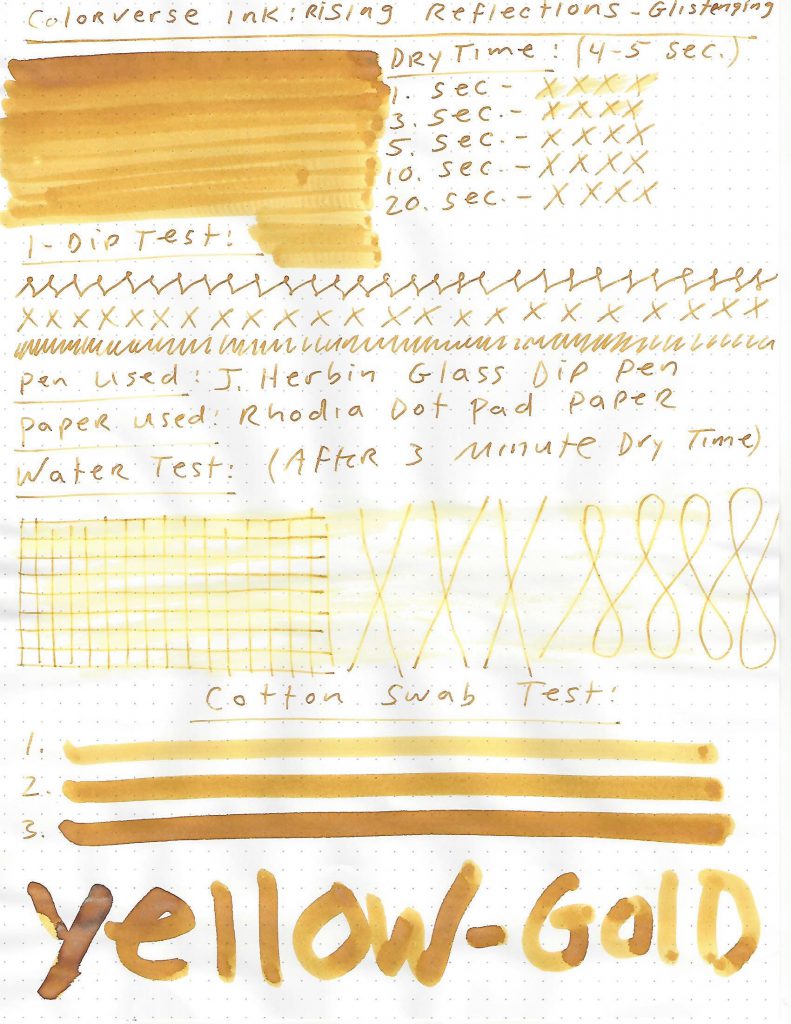 Colorverse Ink: Rising Reflections - Glistening
Dry Time: (4-5 sec.)
1. sec - X X X X
3. sec. - X X X X
5. sec. - X X X X
10. sec. - X X X X
20. sec. - X X X X
1-Dip Test:
X X X X X X X X X X X X X X X X X X X X X X
Pen Used: J. Herbin Glass Dip Pen
Paper Used: Rhodia Dot Pad Paper
Water Test: (After 3 Minute Dry Time)
Cotton Swab Test:
1.
2.
3.
Yellow-Gold